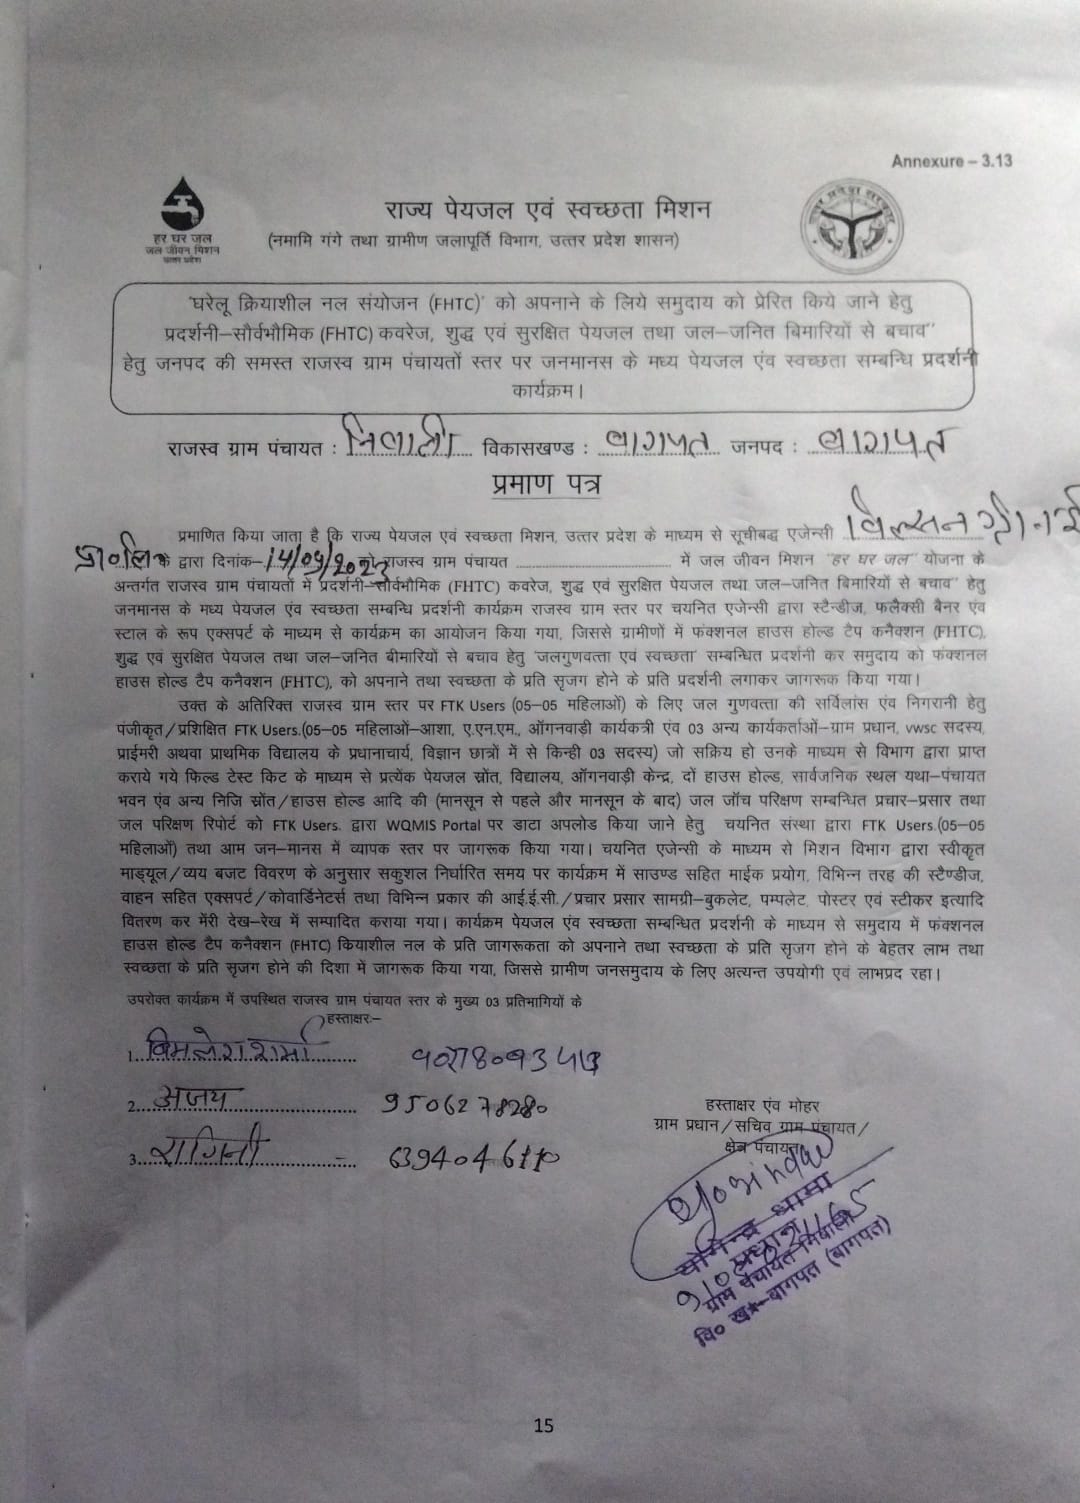 Annexure – 3.13
हर घर जल
जल जीवन मिशन
उत्तर प्रदेश
राज्य पेयजल एवं स्वच्छता मिशन
(नमामि गंगे तथा ग्रामीण जलापूर्ति विभाग, उत्तर प्रदेश शासन)
उत्तर प्रदेश सरकार
'घरेलू क्रियाशील नल संयोजन (FHTC)' को अपनाने के लिये समुदाय को प्रेरित किये जाने हेतु
प्रदर्शनी–सौर्वभौमिक (FHTC) कवरेज, शुद्ध एवं सुरक्षित पेयजल तथा जल–जनित बिमारियों से बचाव''
हेतु जनपद की समस्त राजस्व ग्राम पंचायतों स्तर पर जनमानस के मध्य पेयजल एंव स्वच्छता सम्बन्धि प्रदर्शनी
कार्यक्रम।
राजस्व ग्राम पंचायत : निवाली विकासखण्ड : बागपत जनपद : बागपत
प्रमाण पत्र
प्रमाणित किया जाता है कि राज्य पेयजल एवं स्वच्छता मिशन, उत्तर प्रदेश के माध्यम से सूचीबद्ध एजेन्सी विल्सन
प्रा०लि० के द्वारा दिनांक– 14/05/2025 को राजस्व ग्राम पंचायत ........ में जल जीवन मिशन "हर घर जल" योजना के
अन्तर्गत राजस्व ग्राम पंचायतों में प्रदर्शनी–सौर्वभौमिक (FHTC) कवरेज, शुद्ध एवं सुरक्षित पेयजल तथा जल–जनित बिमारियों से बचाव'' हेतु
जनमानस के मध्य पेयजल एंव स्वच्छता सम्बन्धि प्रदर्शनी कार्यक्रम राजस्व ग्राम स्तर पर चयनित एजेन्सी द्वारा स्टैन्डीज, फलैक्सी बैनर एंव
स्टाल के रूप एक्सपर्ट के माध्यम से कार्यक्रम का आयोजन किया गया, जिससे ग्रामीणों में फंक्शनल हाउस होल्ड टैप कनैक्शन (FHTC),
शुद्ध एवं सुरक्षित पेयजल तथा जल–जनित बीमारियों से बचाव हेतु 'जलगुणवत्ता एवं स्वच्छता' सम्बन्धित प्रदर्शनी कर समुदाय को फंक्शनल
हाउस होल्ड टैप कनैक्शन (FHTC), को अपनाने तथा स्वच्छता के प्रति सृजग होने के प्रति प्रदर्शनी लगाकर जागरूक किया गया।
उक्त के अतिरिक्त राजस्व ग्राम स्तर पर FTK Users (05–05 महिलाओं) के लिए जल गुणवत्ता की सर्विलांस एंव निगरानी हेतु
पंजीकृत/प्रशिक्षित FTK Users.(05–05 महिलाओं–आशा, ए.एन.एम., ऑगनवाड़ी कार्यकत्री एंव 03 अन्य कार्यकर्ताओं–ग्राम प्रधान, vwsc सदस्य,
प्राईमरी अथवा प्राथमिक विद्यालय के प्रधानाचार्य, विज्ञान छात्रों में से किन्ही 03 सदस्य) जो सक्रिय हो उनके माध्यम से विभाग द्वारा प्राप्त
कराये गये फिल्ड टेस्ट किट के माध्यम से प्रत्येंक पेयजल स्रोंत, विद्यालय, ऑगनवाड़ी केन्द्र, दों हाउस होल्ड, सार्वजनिक स्थल यथा–पंचायत
भवन एंव अन्य निजि स्रोंत/हाउस होल्ड आदि की (मानसून से पहले और मानसून के बाद) जल जॉच परिक्षण सम्बन्धित प्रचार–प्रसार तथा
जल परिक्षण रिपोर्ट को FTK Users. द्वारा WQMIS Portal पर डाटा अपलोड किया जाने हेतु चयनित संस्था द्वारा FTK Users.(05–05
महिलाओं) तथा आम जन–मानस में व्यापक स्तर पर जागरूक किया गया। चयनित एजेन्सी के माध्यम से मिशन विभाग द्वारा स्वीकृत
माड्यूल/व्यय बजट विवरण के अनुसार सकुशल निर्धारित समय पर कार्यक्रम में साउण्ड सहित माईक प्रयोग, विभिन्न तरह की स्टैण्डीज,
वाहन सहित एक्सपर्ट/कोवार्डिनेटर्स तथा विभिन्न प्रकार की आई.ई.सी./प्रचार प्रसार सामग्री–बुकलेट, पम्पलेट, पोस्टर एवं स्टीकर इत्यादि
वितरण कर मेंरी देख–रेख में सम्पादित कराया गया। कार्यक्रम पेयजल एंव स्वच्छता सम्बन्धित प्रदर्शनी के माध्यम से समुदाय में फंक्शनल
हाउस होल्ड टैप कनैक्शन (FHTC) कियाशील नल के प्रति जागरूकता को अपनाने तथा स्वच्छता के प्रति सृजग होने के बेहतर लाभ तथा
स्वच्छता के प्रति सृजग होने की दिशा में जागरूक किया गया, जिससे ग्रामीण जनसमुदाय के लिए अत्यन्त उपयोगी एवं लाभप्रद रहा।
उपरोक्त कार्यक्रम में उपस्थित राजस्व ग्राम पंचायत स्तर के मुख्य 03 प्रतिभागियों के
हस्ताक्षरः–
1. विमलेश शर्मा
2. अजय 9506278280
3. रागिनी – 6394046110
हस्ताक्षर एंव मोहर
ग्राम प्रधान/सचिव ग्राम पंचायत/
क्षेत्र पंचायत
योगेन्द्र धामा
प्रधान
ग्राम पंचायत-निवाली
वि० ख०-बागपत (बागपत)
15